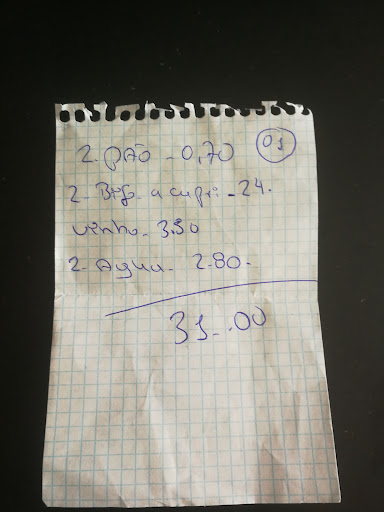 2. pão - 0,70
01
2- Bif. a cupri - 24.
vinho - 3.50
2- Agua - 2.80.
31-.00